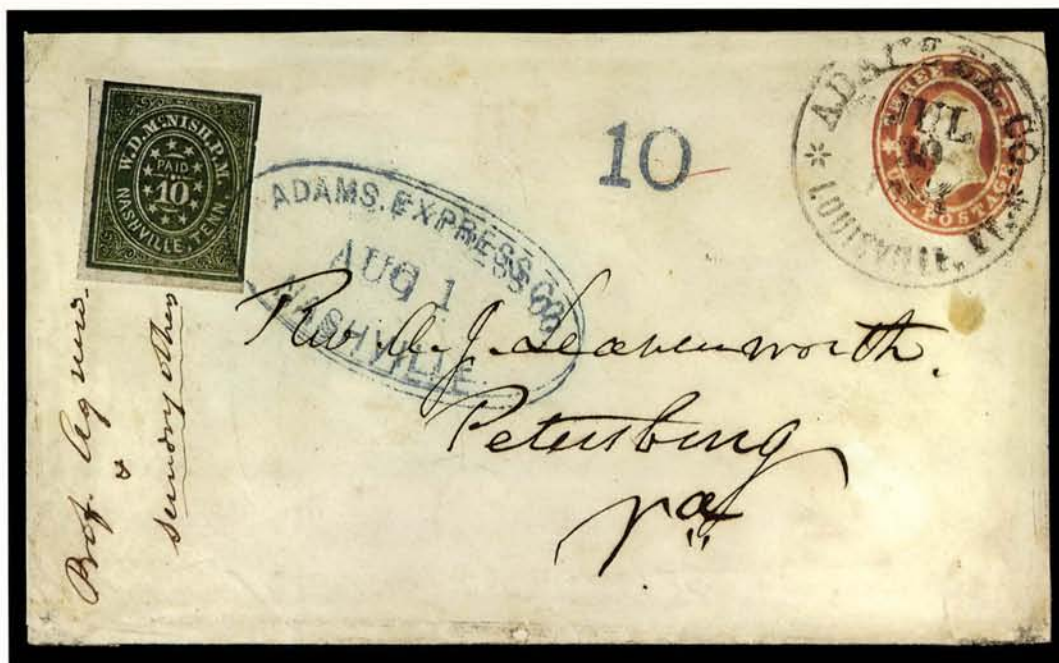 W.D. McNISH. P.M.
PAID
10
NASHVILLE, TENN.
ADAMS. EXPRESS CO
AUG 1
NASHVILLE
10
ADAMS EX. CO.
JUL
LOUISVILLE, KY.
THREE
U.S. POSTAGE
Rev. A. J. Leavenworth.
Petersburg
Va
Prof.
&
sundry others